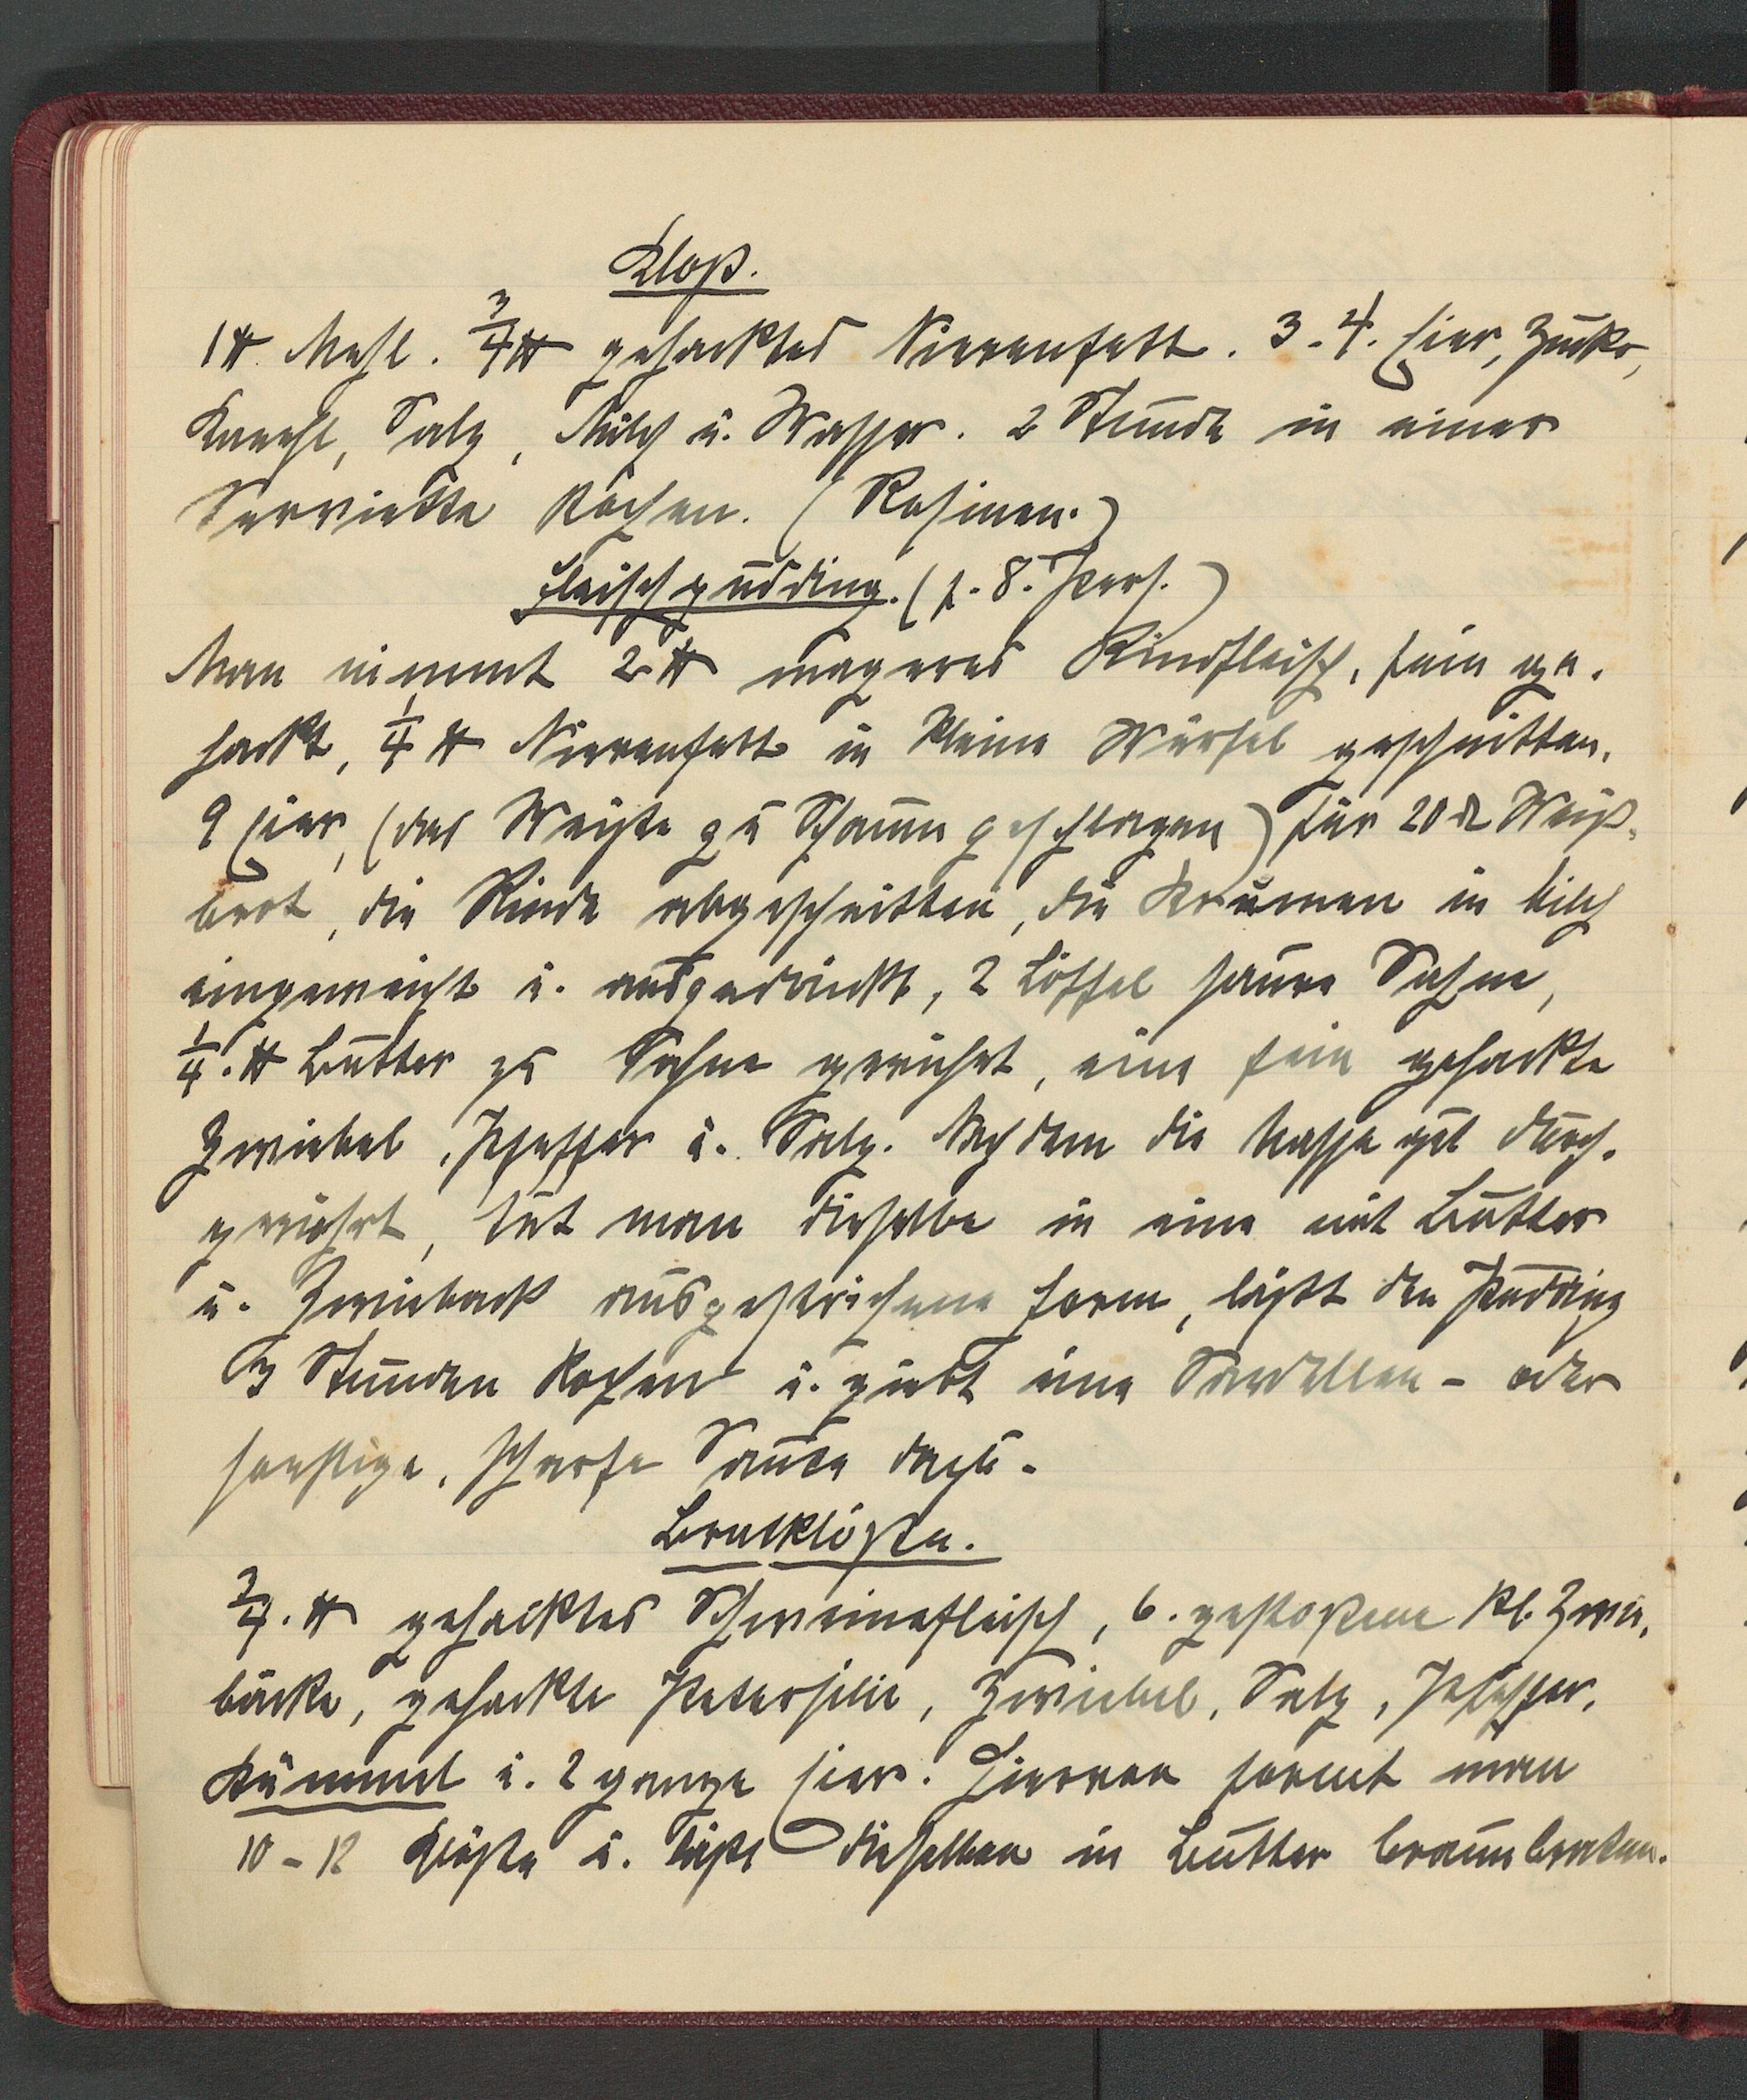 Kloß.
1 ℔. Mehl. 3/4 ℔ gehacktes Nierenfett. 3-4. Eier, Zucker,
Kaneehl, Salz, Milch u. Wasser. 2 Stunde in einer
Serviette kochen. (Rosinen.)
Fleischpudding. (f. 8. Pers.)
Man nimmt 2 ℔ mageres Rindfleisch, fein ge-
hackt, 1/4 ℔ Nierenfett in kleine Würfel geschnitten.
9 Eier, (das Weiße zu Schaum geschlagen) für 20 ₰ Weiß-
brot, die Rinde abgeschnitten, die Krumen in Milch
eingeweicht u. ausgedrückt, 2 Löffel saure Sahne,
1/4. ℔ Butter zu Sahne gerührt, eine fein gehackte
Zwiebel, Pfeffer u. Salz. Nachdem die Masse gut durch-
gerührt, tut man dieselbe in eine mit Butter
u. Zwieback ausgestrichene Form, läßt den Pudding
3 Stunden kochen u. giebt eine Sardellen- oder
sonstige, scharfe Sauce dazu.
Bratklöße.
3/4. ℔ gehacktes Schweinefleisch, 6. gestoßene kl. Zwie-
bäcke, gehackte Petersilie, Zwiebel, Salz, Pfeffer,
Kümmel u. 2 ganze Eier. Hiervon formt man
10-12 Klöße u. läßt dieselben in Butter braun braten.